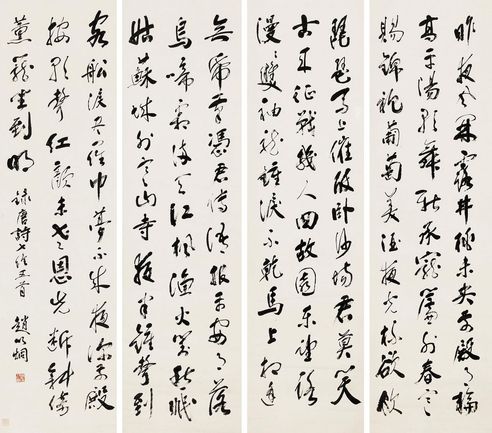 昨夜風開露井桃未央前殿月輪
高平陽歌舞新承寵簾外春寒
賜錦袍葡萄美酒夜光杯欲飲
琵琶馬上催醉臥沙場君莫笑
古來征戰幾人回故園東望路
漫漫雙袖龍鍾淚不乾馬上相逢
無紙筆憑君傳語報平安月落
烏啼霜滿天江楓漁火對愁眠
姑蘇城外寒山寺夜半鐘聲到
客船淚盡羅巾夢不成夜深前殿
按歌聲紅顏未老恩先斷斜倚
薰籠坐到明
錄唐詩七絕五首 趙以炯